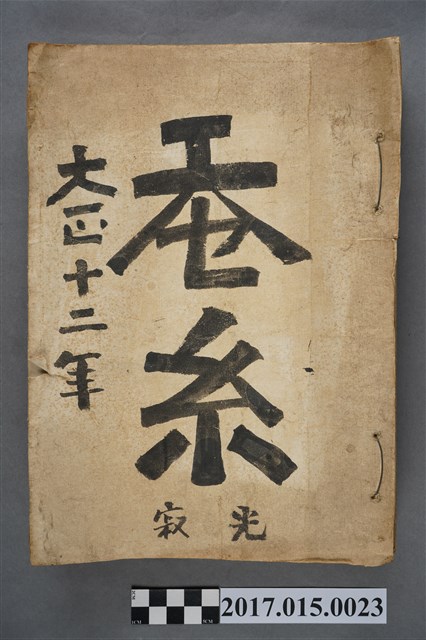 蚕糸
大正十二年
光寂
2017.015.0023